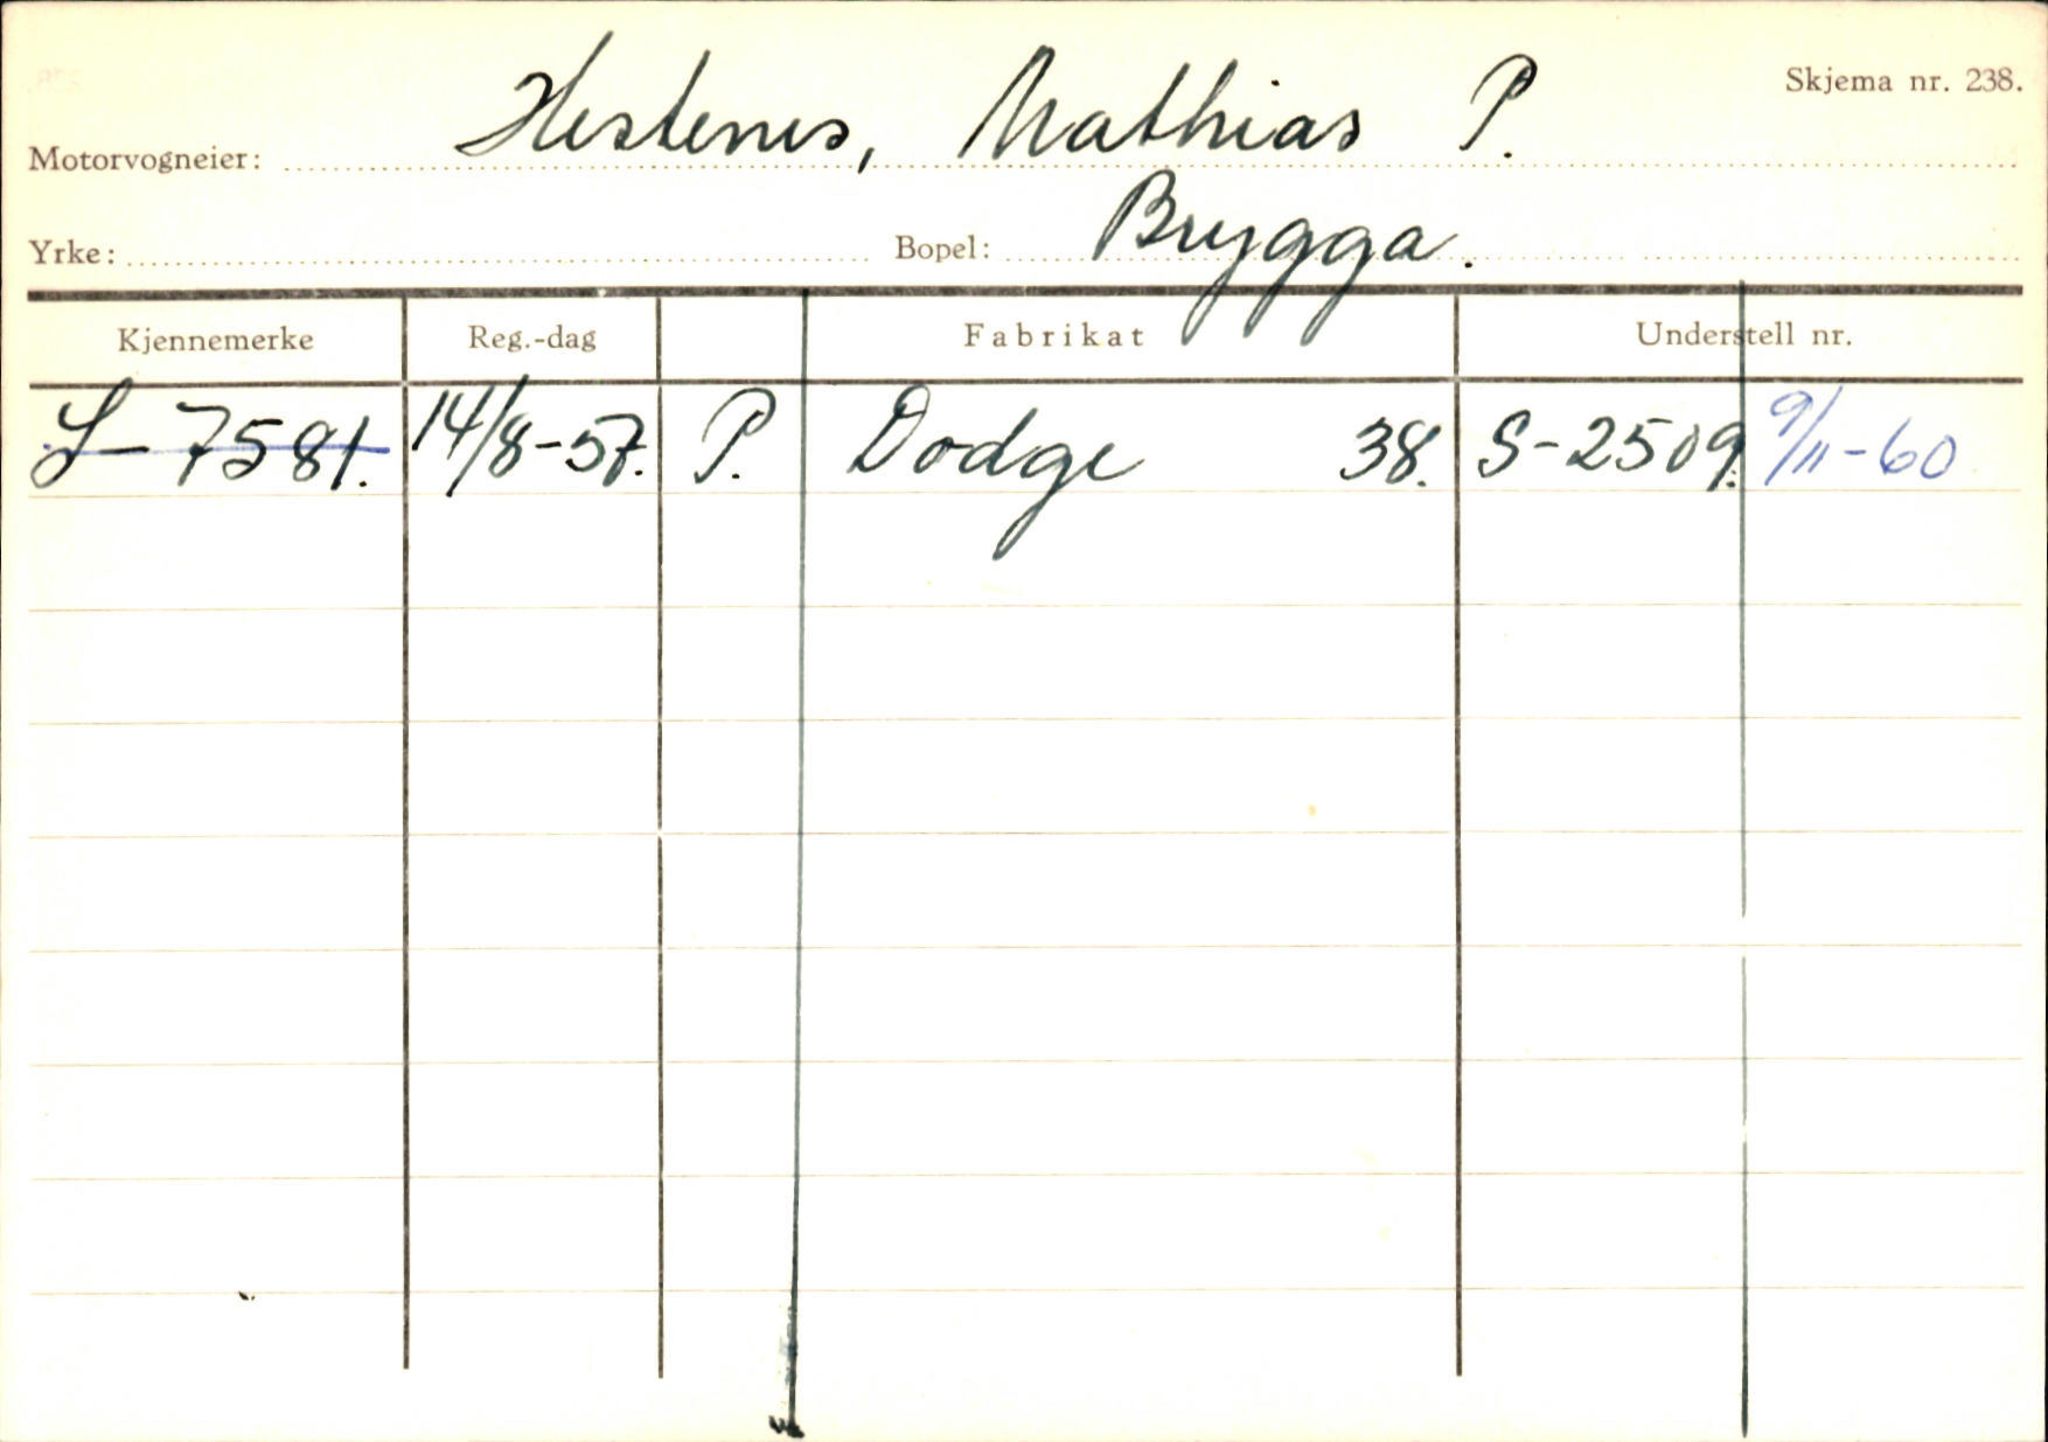 Skjema nr. 238.
Motorvogneier: Hestenes, Mathias P.
Yrke: Bopel: Brygga.
Kjennemerke Reg.-dag Fabrikat Understell nr.
S-7581. 14/8-57. P. Dodge 38. S-2509. 9/11-60